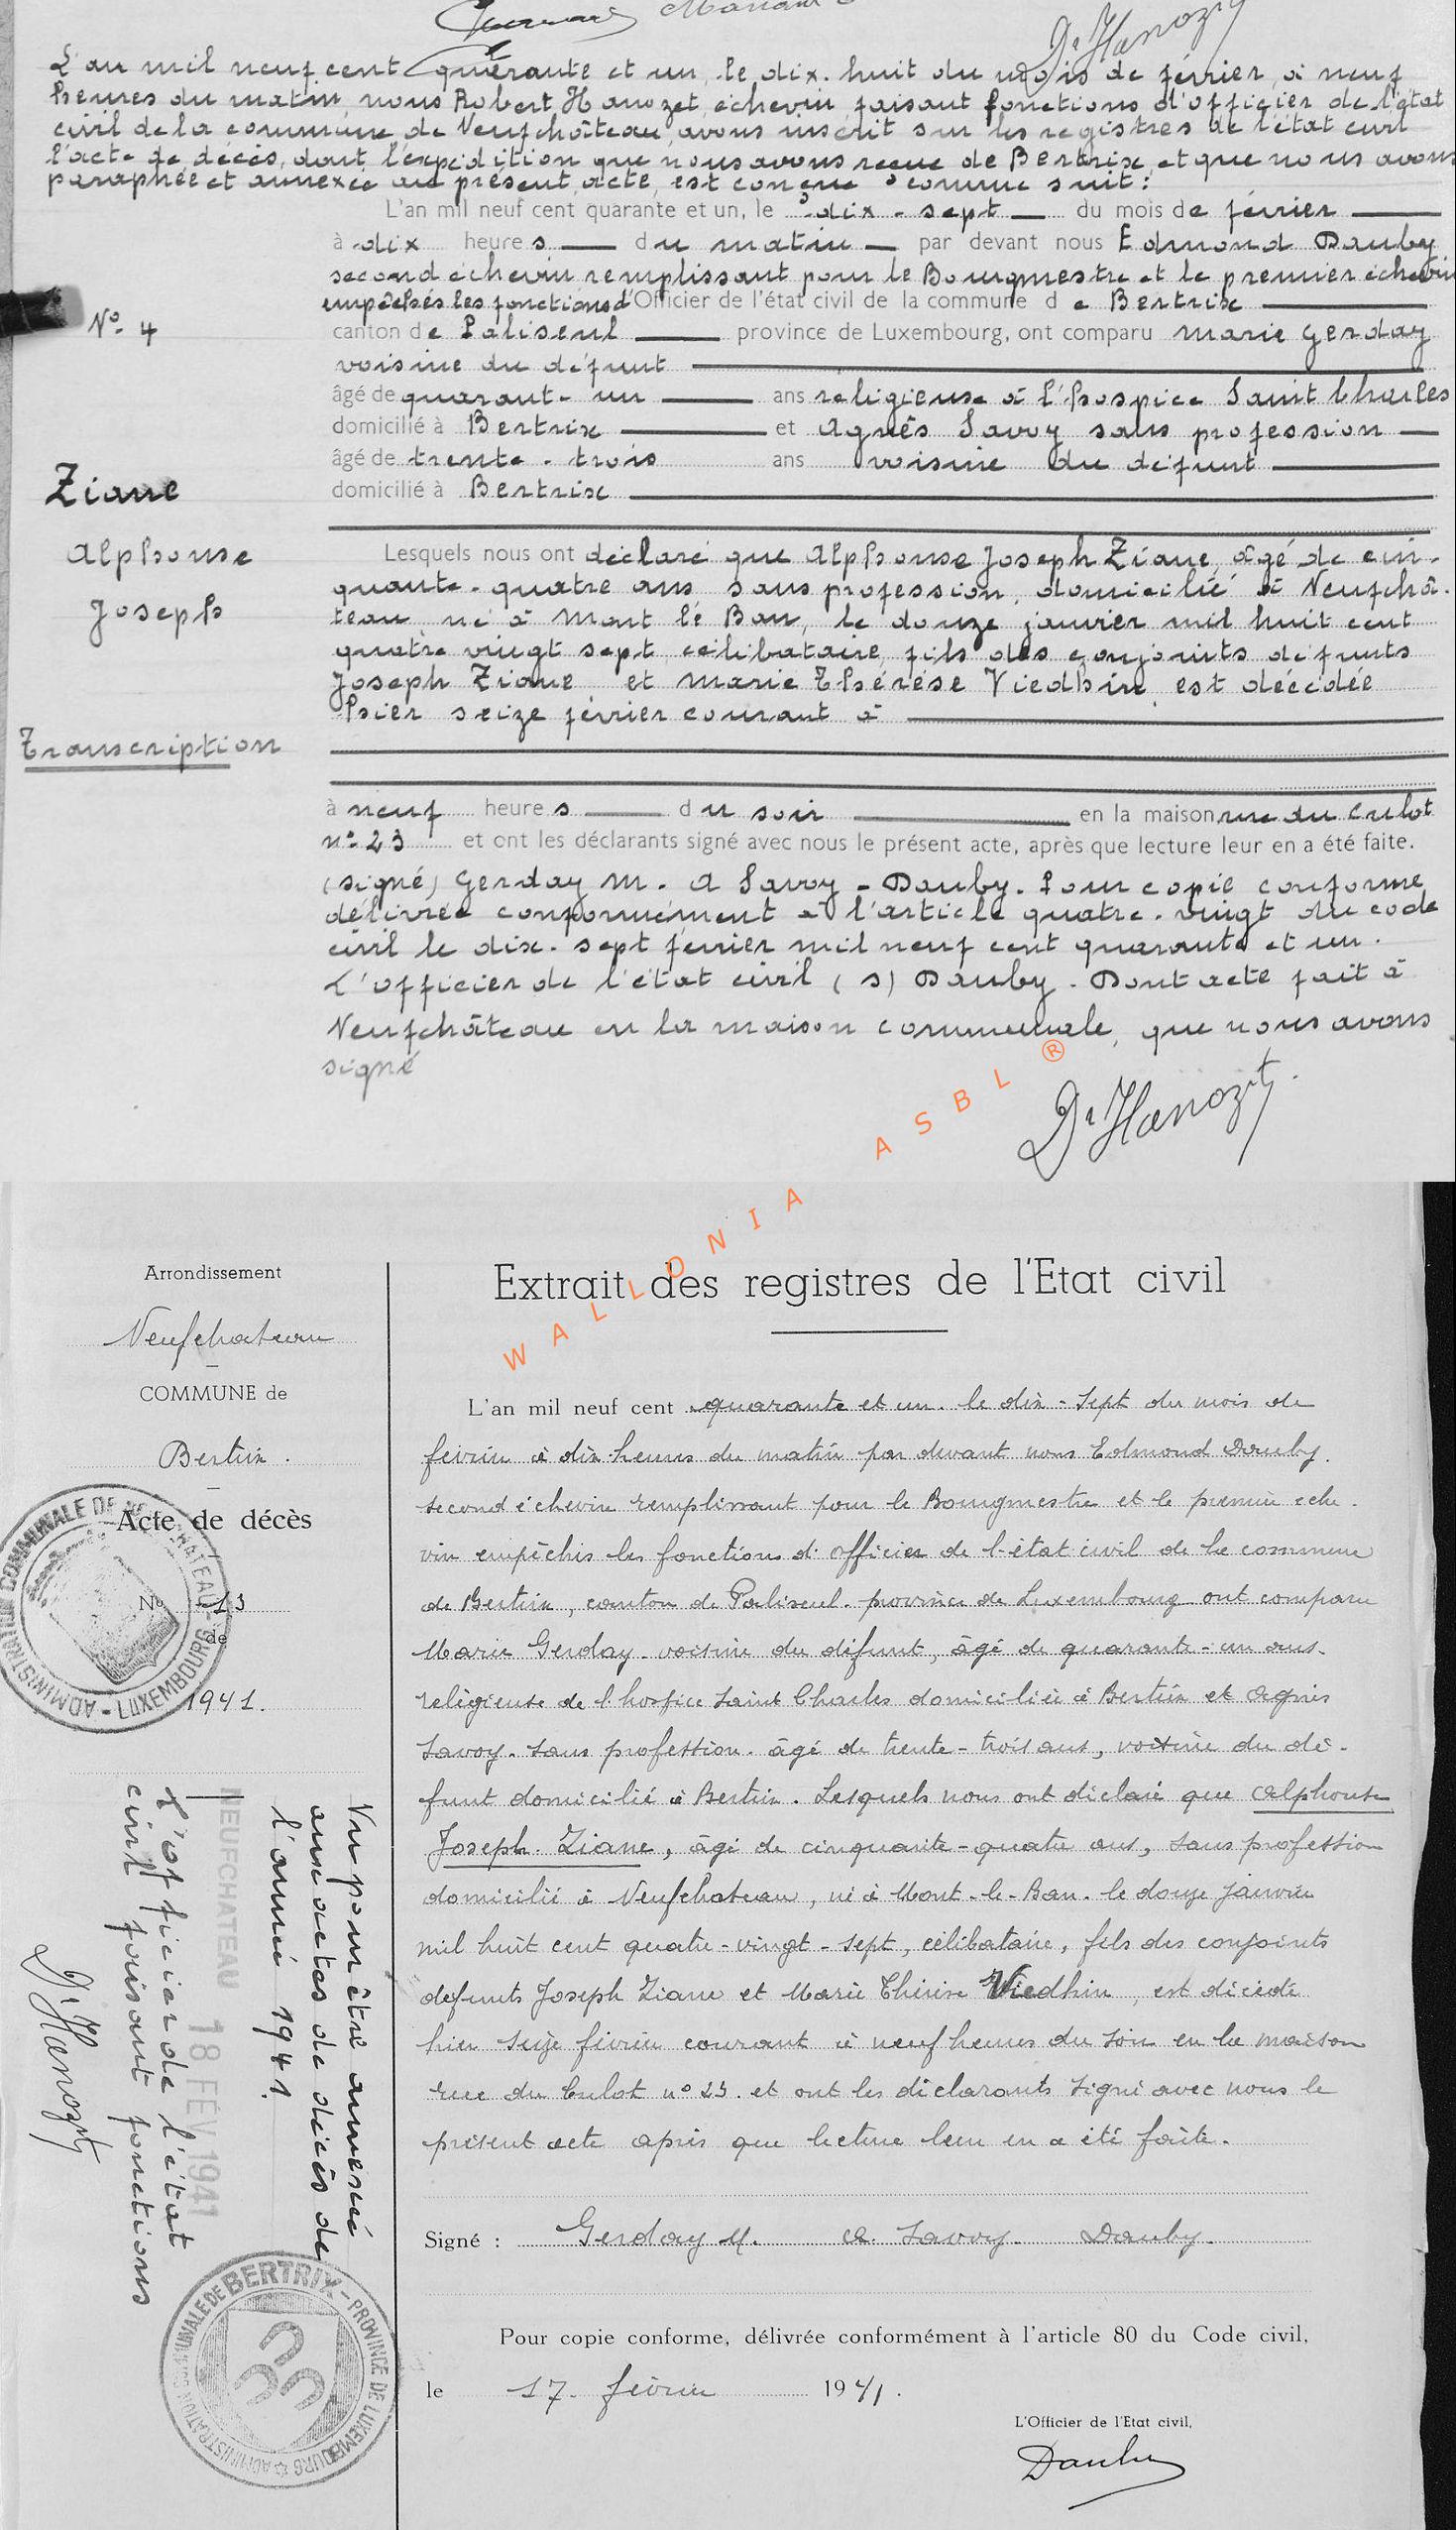 Dr Hanozet
L'an mil neuf cent quarante et un, le dix-huit du mois de février, à neuf
heures du matin, nous Robert Hanozet échevin faisant fonctions d'officier de l'état
civil de la commune de Neufchâteau avons inscrit sur les registres de l'état civil
l'acte de décès, dont l'expédition que nous avons reçue de Bertrix et que nous avons
paraphée et annexée au présent acte, est conçue comme suit :
L'an mil neuf cent quarante et un, le dix-sept du mois de février
à dix heures du matin par devant nous Edmond Dauby
second échevin remplissant pour le Bourgmestre et le premier échevin
empêchés les fonctions d'Officier de l'état civil de la commune de Bertrix
No 4
canton de Paliseul province de Luxembourg, ont comparu Marie Gerday
voisine du défunt
âgé de quarant-un ans religieuse à l'hospice Saint Charles
domicilié à Bertrix et Agnès Savoy sans profession
âgé de trente-trois ans voisine du défunt
domicilié à Bertrix
Ziane
Alphonse
Joseph
Lesquels nous ont déclaré que Alphonse Joseph Ziane, âgé de cin-
quante-quatre ans sans profession, domicilié à Neufchâ-
teau né à Mont lé Ban, le douze janvier mil huit cent
quatre vingt sept, célibataire, fils des conjoints défunts
Joseph Ziane et Marie Thérèse Viedhin, est décédée
hier seize février courant à
Transcription
à neuf heures du soir en la maison rue du Culot
no 23 et ont les déclarants signé avec nous le présent acte, après que lecture leur en a été faite.
(signé) Gerday M. A Savoy - Dauby. Pour copie conforme
délivrée conformément à l'article quatre-vingt du code
civil le dix-sept février mil neuf cent quarante et un.
L'officier de l'état civil (s) Dauby. Dont acte fait à
Neufchâteau en la maison communale, que nous avons
signé
Dr Hanozet
WALLONIA ASBL ®
Arrondissement
Neufchateau
COMMUNE de
Bertrix.
Acte de décès
No 13
de
1941.
ADMINISTRATION COMMUNALE DE NEUFCHATEAU - LUXEMBOURG
Extrait des registres de l'Etat civil
L'an mil neuf cent quarante et un. le dix-sept du mois de
février à dix heures du matin par devant nous Edmond Dauby.
second échevin remplissant pour le Bourgmestre et le premier éche-
vin empêchés les fonctions d'officier de l'état civil de la commune
de Bertrix, canton de Paliseul. province de Luxembourg ont comparu
Marie Gerday. voisine du défunt, âgé de quarante-un ans.
religieuse de l'hospice Saint Charles domiciliée à Bertrix et Agnès
Savoy. sans profession. âgé de trente-trois ans, voisine du dé-
funt domicilié à Bertrix. Lesquels nous ont déclaré que Alphonse
Joseph. Ziane, âgé de cinquante-quatre ans, sans profession
domicilié à Neufchateau, né à Mont-le-Ban. le douze janvier
mil huit cent quatre-vingt-sept, célibataire, fils des conjoints
defunts Joseph Ziane et Marie Thérèse Viedhin, est décédé
hier seize février courant à neuf heures du soir en la maison
rue du Culot no 23. et ont les déclarants signé avec nous le
présent acte après que lecture leur en a été faite.
Signé : Gerday M. A. Savoy. Dauby.
Pour copie conforme, délivrée conformément à l'article 80 du Code civil,
le 17. février 1941.
L'Officier de l'Etat civil,
Dauby
Vu pour être annexé
aux actes de décès de
l'année 1941.
NEUFCHATEAU 18 FEV 1941
L'officier de l'état
civil faisant fonctions
Dr Hanozet
ADMINISTRATION COMMUNALE DE BERTRIX - PROVINCE DE LUXEMBOURG